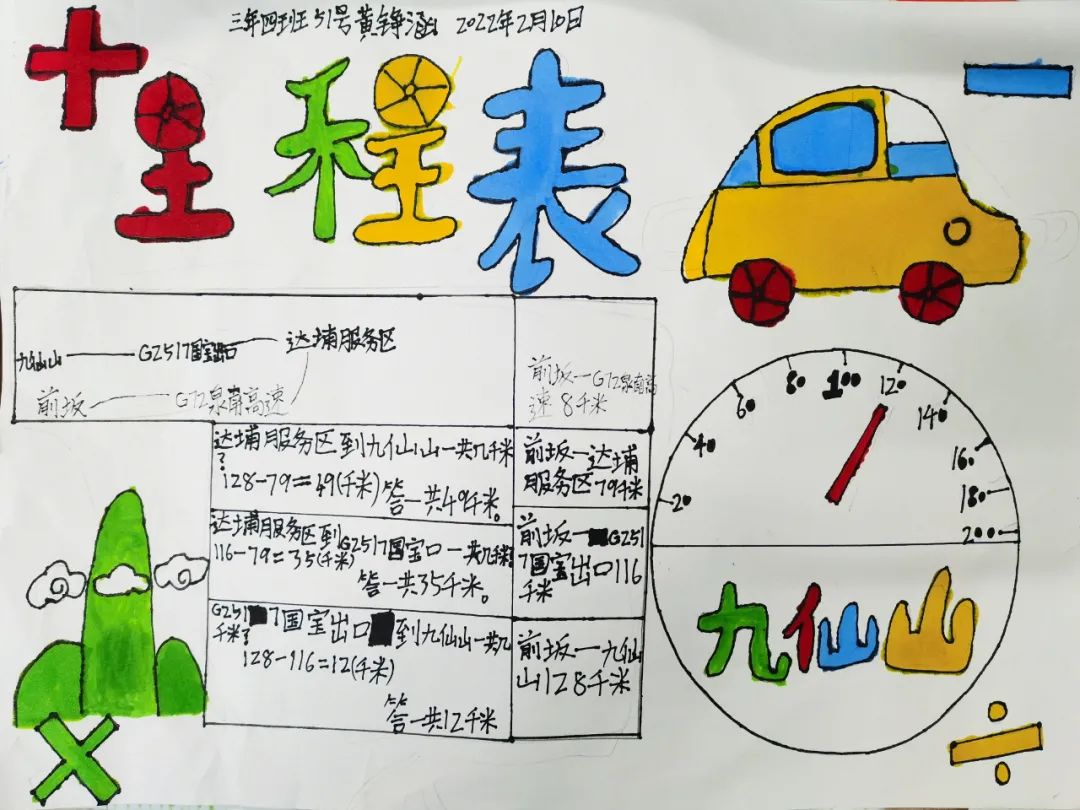 三年四班51号黄铮涵 2022年2月10日
里程表
九仙山 G2517国宝出口 达埔服务区
前坂 G72泉南高速
前坂—G72泉南高
速 8千米
达埔服务区到九仙山一共几千米
?
128-79=49(千米) 答一共49千米。
前坂—达埔
服务区79千米
达埔服务区到G2517国宝口一共几千米
116-79=35(千米)
答一共35千米。
前坂—G251
7国宝出口116
千米
G2517国宝出口到九仙山一共几
千米?
128-116=12(千米)
答一共12千米
前坂—九仙
山128千米
20 40 60 80 100 120 140 160 180 200
九仙山